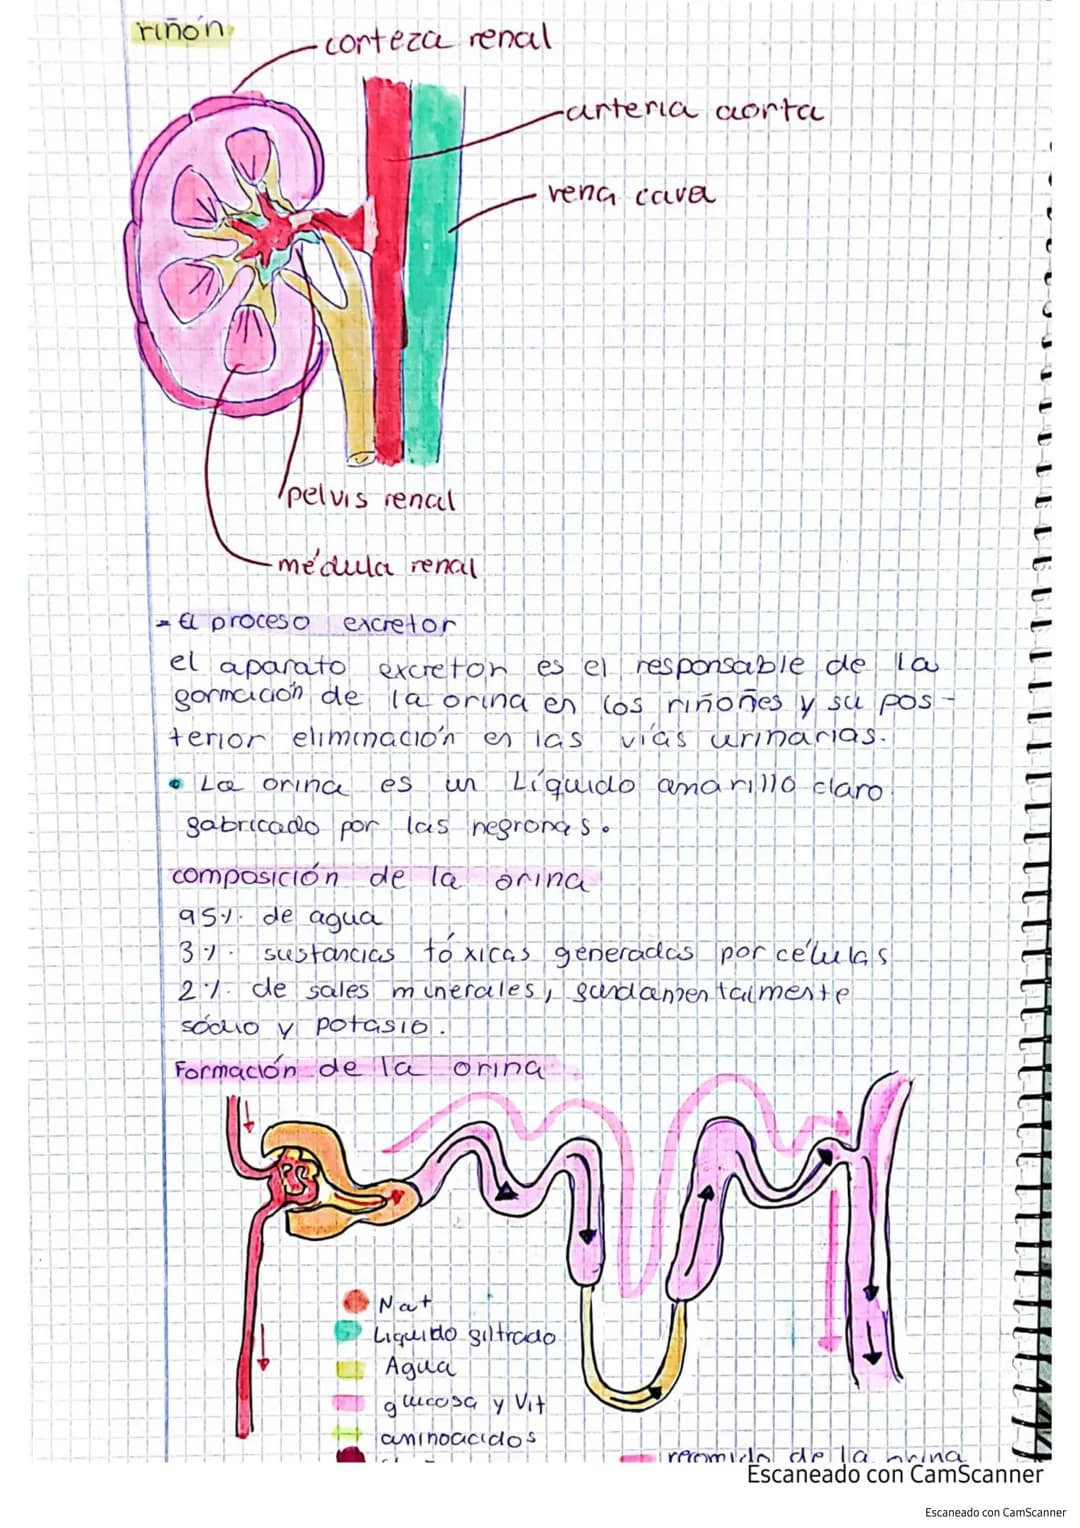 riñón
corteza renal
arteria aorta
vena cava
pelvis renal
médula renal
- El proceso excretor
el aparato excretor es el responsable de la
formación de la orina en los riñoñes y su pos-
terior eliminación en las vías urinarias.
• La orina es un Líquido amarillo claro
fabricado por las negronas.
composición de la orina
95% de agua
3% sustancias tóxicas generadas por células
2% de sales minerales, fundamentalmente
sódio y potasio.
Formación de la orina
Na+
Liquido filtrado
Agua
glucosa y Vit
aminoacidos
de la orina
Escaneado con CamScanner
Escaneado con CamScanner